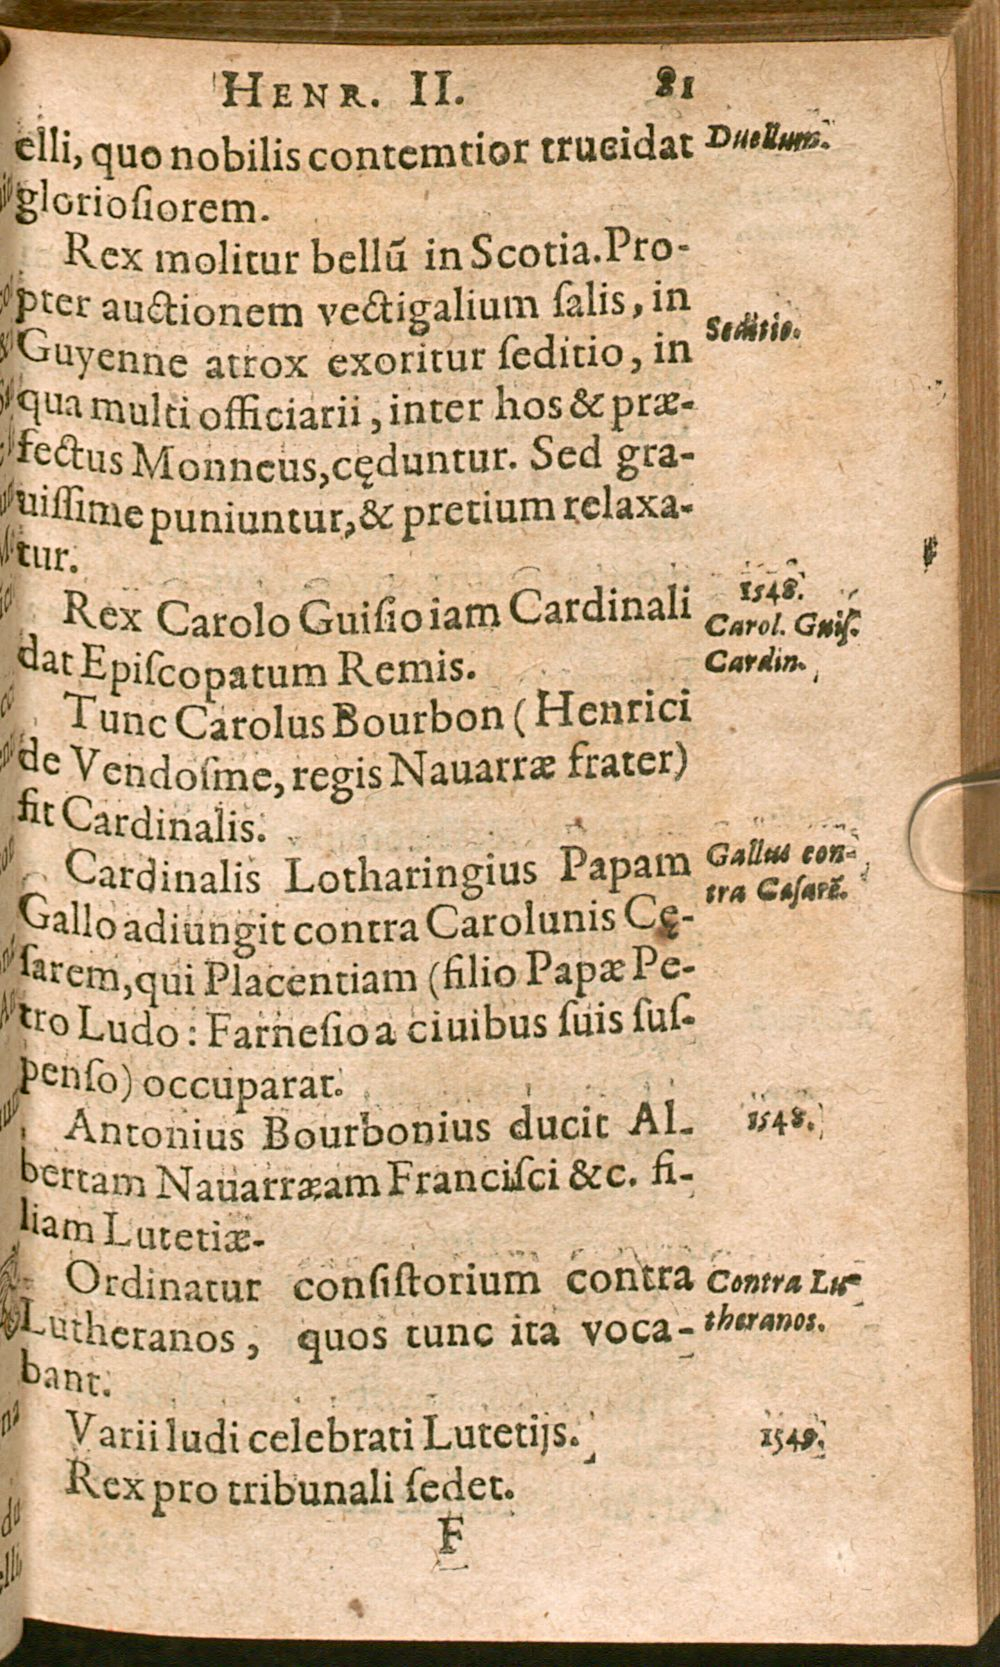 HENR. II. 81
elli, quo nobilis contemtior trucidat
Duellum.
gloriosiorem.
Rex molitur bellū in Scotia. Pro-
pter auctionem vectigalium salis, in
Seditio.
Guyenne atrox exoritur seditio, in
qua multi officiarii, inter hos & præ-
fectus Monneus, cęduntur. Sed gra-
uissime puniuntur, & pretium relaxa-
tur.
Rex Carolo Guisio iam Cardinali
1548.
Carol. Guis.
dat Episcopatum Remis.
Cardin.
Tunc Carolus Bourbon (Henrici
de Vendosme, regis Nauarræ frater)
fit Cardinalis.
Cardinalis Lotharingius Papam
Gallus con-
tra Cæsarē.
Gallo adiungit contra Carolunis Cę-
sarem, qui Placentiam (filio Papæ Pe-
tro Ludo: Farnesio a ciuibus suis sus-
penso) occuparat.
Antonius Bourbonius ducit Al-
1548.
bertam Nauarræam Francisci &c. fi-
liam Lutetiæ.
Ordinatur consistorium contra
Contra Lu-
Lutheranos, quos tunc ita voca-
theranos.
bant.
Varii ludi celebrati Lutetijs.
1549.
Rex pro tribunali sedet.
F